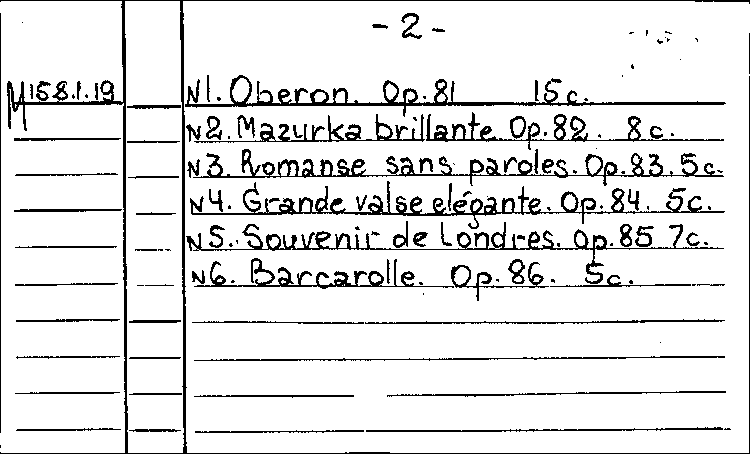 - 2 -
M158.1.19 N1. Oberon. Op. 81 15c.
N2. Mazurka brillante. Op. 82. 8c.
N3. Romanse sans paroles. Op. 83. 5c.
N4. Grande valse elégante. Op. 84. 5c.
N5. Souvenir de Londres. Op. 85 7c.
N6. Barcarolle. Op. 86. 5c.